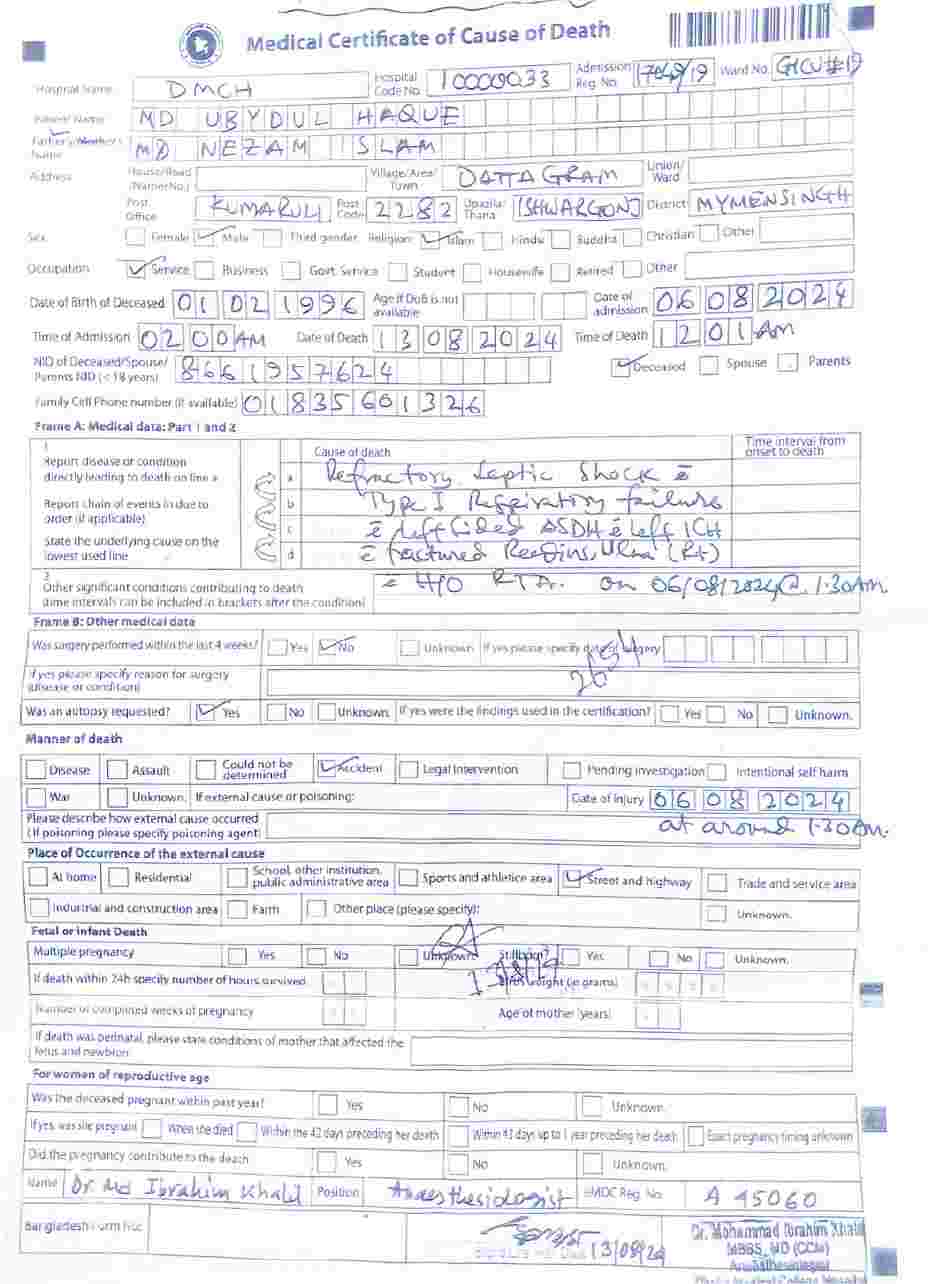 Medical Certificate of Cause of Death
Hospital Name DMCH Hospital Code No. 10000033 Admission Reg. No. Ward No.
Patient Name MD UBYDUL HAQUE
Father's/Mother's Name MD NEZAM SLAM
Address House/Road (Name/No.) Village/Area/Town DATTAGRAM Union/Ward
Post Office KUMARULI Post Code 2282 Upazila/Thana ISHWARGONJ District MYMENSINGH
Sex Female Male Third gender Religion Islam Hindu Buddha Christian Other
Occupation Service Business Govt. Service Student Housewife Retired Other
Date of Birth of Deceased 01 02 1996 Age if DoB is not available Date of admission 06 08 2024
Time of Admission 02 00 AM Date of Death 13 08 2024 Time of Death 12 01 AM
NID of Deceased/Spouse/Parents NID (<18 years) 8661957624 Deceased Spouse Parents
Family Cell Phone number (if available) 01835601326
Frame A: Medical data: Part 1 and 2
1
Cause of death Time interval from onset to death
Report disease or condition directly leading to death on line a
a Refractory Septic Shock c̄
Report chain of events in due to order (if applicable)
b Type I Respiratory failure
State the underlying cause on the lowest used line
c c̄ left sided ASDH c̄ left ICH
d c̄ fractured Ulna (Rt)
2
Other significant conditions contributing to death (time intervals can be included in brackets after the condition) c̄ H/O RTA. on 06/08/2024@ 1.30Am
Frame B: Other medical data
Was surgery performed within the last 4 weeks? Yes No Unknown If yes please specify date of surgery
If yes please specify reason for surgery (disease or condition)
Was an autopsy requested? Yes No Unknown. If yes were the findings used in the certification? Yes No Unknown.
Manner of death
Disease Assault Could not be determined Accident Legal Intervention Pending investigation Intentional self harm
War Unknown. If external cause or poisoning: Date of injury 06 08 2024
Please describe how external cause occurred (If poisoning please specify poisoning agent) at around 1.30Am.
Place of Occurrence of the external cause
At home Residential School, other institution, public administrative area Sports and athletics area Street and highway Trade and service area
Industrial and construction area Farm Other place (please specify): Unknown.
Fetal or infant Death
Multiple pregnancy Yes No Unknown Stillborn? Yes No Unknown.
If death within 24h specify number of hours survived Birth weight (in grams)
Number of completed weeks of pregnancy Age of mother (years)
If death was perinatal, please state conditions of mother that affected the fetus and newborn
For women of reproductive age
Was the deceased pregnant within past year? Yes No Unknown.
If yes, was she pregnant When she died Within the 42 days preceding her death Within 43 days up to 1 year preceding her death Exact pregnancy timing unknown
Did the pregnancy contribute to the death Yes No Unknown.
Name Dr. Md Ibrahim Khalil Position Anaesthesiologist BMDC Reg. No. A 45060
Bangladesh Form No: 13/08/24
Dr. Mohammad Ibrahim Khalil
MBBS, MD (CCM)
Anaesthesiologist
Dhaka Medical College Hospital